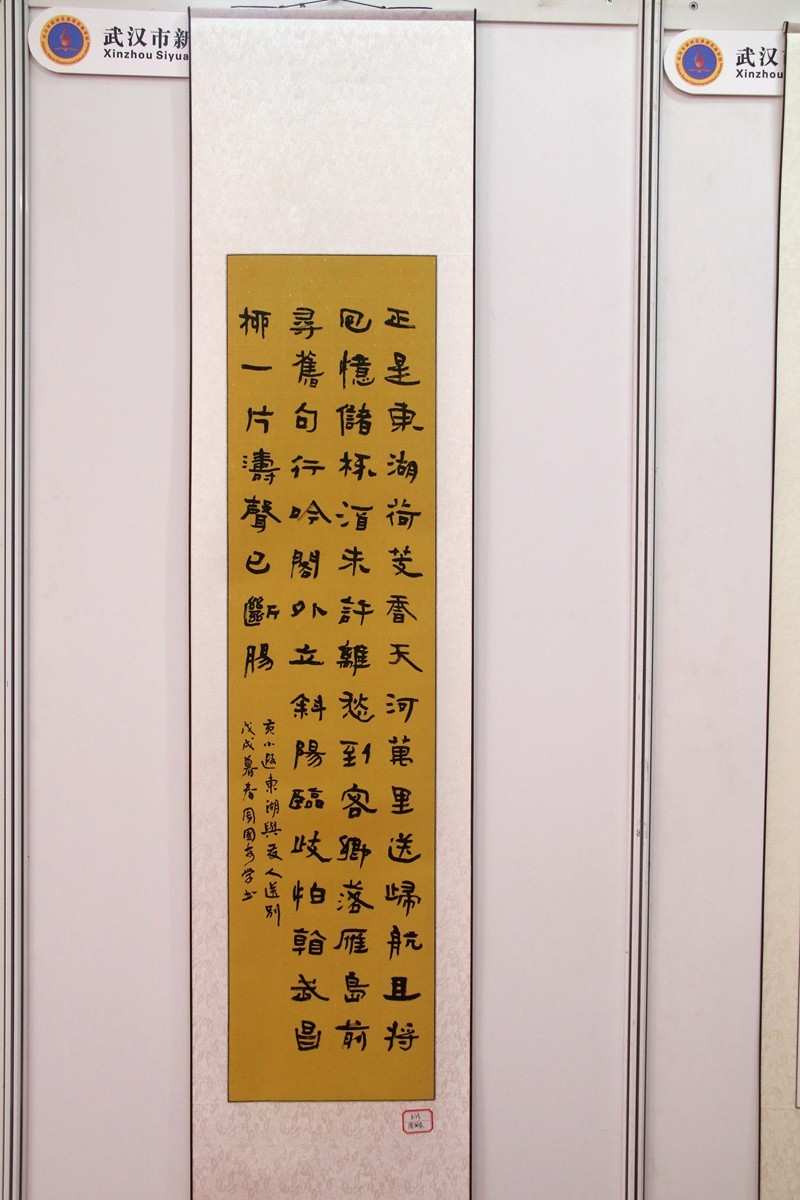 武汉市新
Xinzhou Siyua
武汉
Xinzhou
正是東湖荷芰香天河萬里送歸航且將
囬憶儲杯酒未許離愁到客鄉落雁島前
尋舊句行吟閣外立斜陽臨歧怕看武昌
柳一片濤聲已斷腸
黄小遐東湖與友人送別
戊戌暮春周國安学书